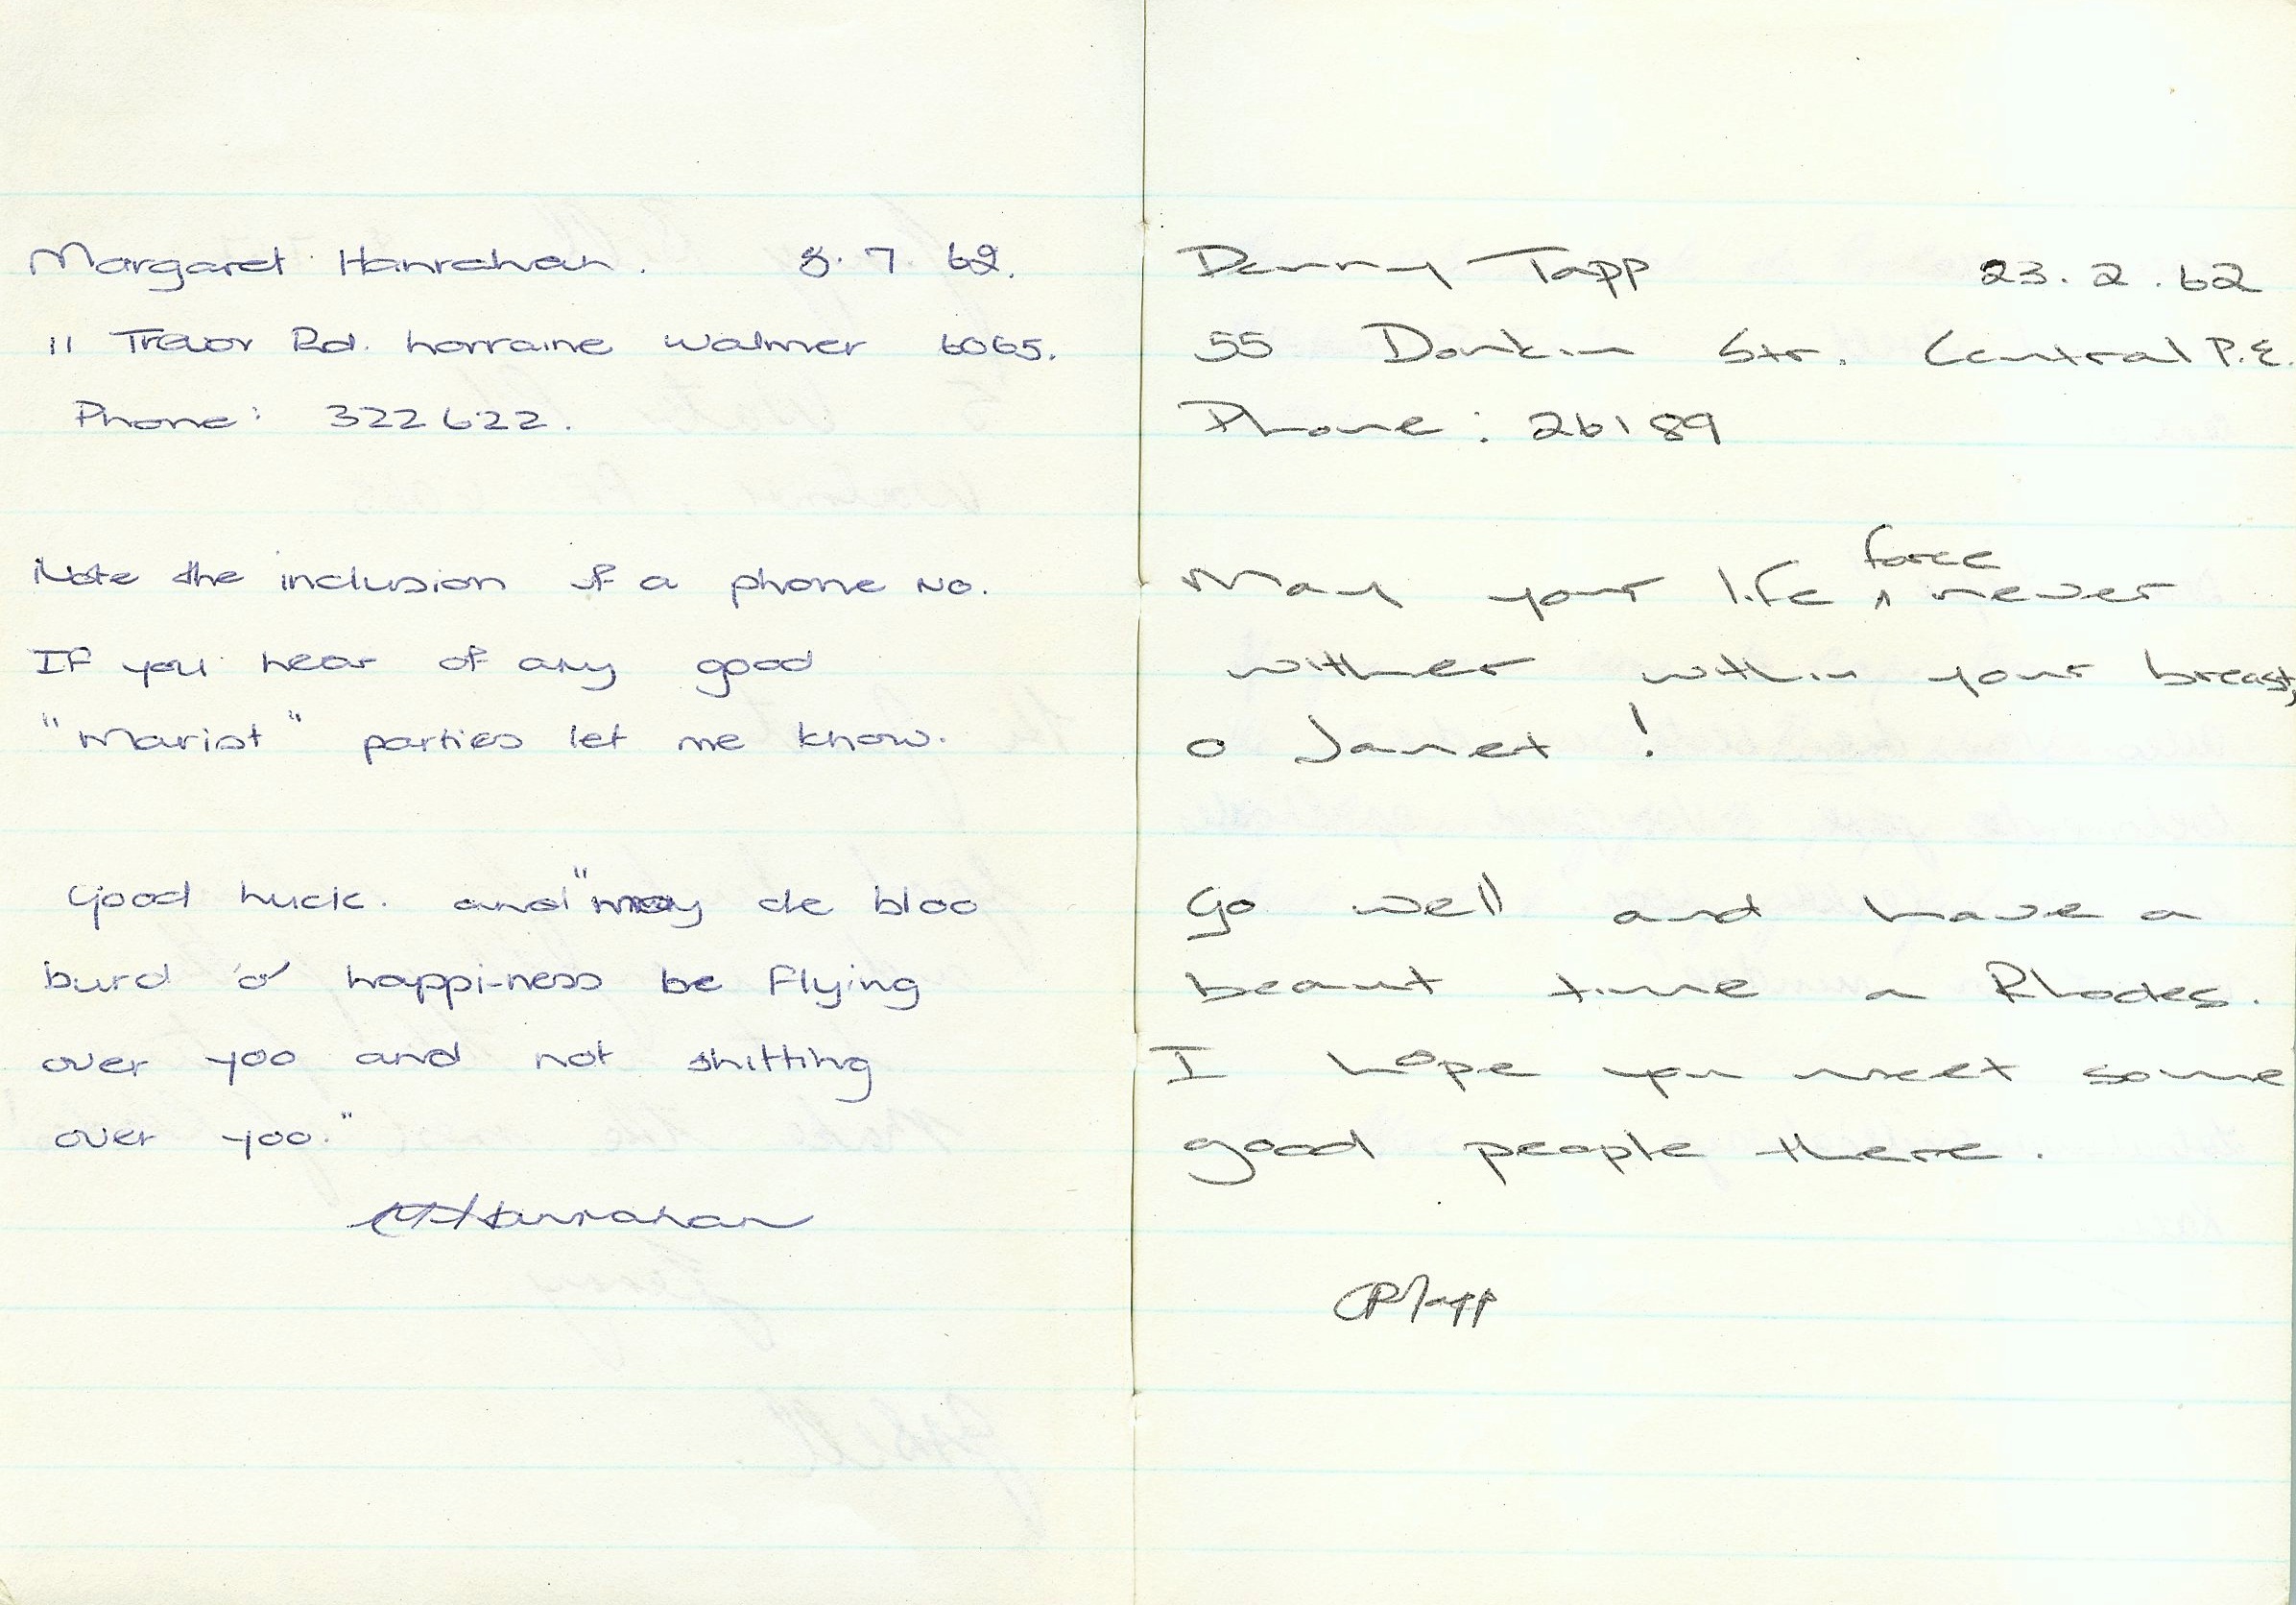 Margaret Hanrahan. 8. 7. 62.
11 Trevor Rd. Lorraine Walmer 6065.
Phone: 322622.
Note the inclusion of a phone No.
If you hear of any good
"Marist" parties let me know.
Good Luck. and "may de bloo
burd o' happi-ness be flying
over yoo and not shitting
over yoo."
MHanrahan
Denny Tapp 23. 2. 62
55 Donkin Str. Central P.E.
Phone: 26189
May your life ^ force never
wither within your breast,
o Janet !
Go well and have a
beaut time a Rhodes.
I hope you meet some
good people there.